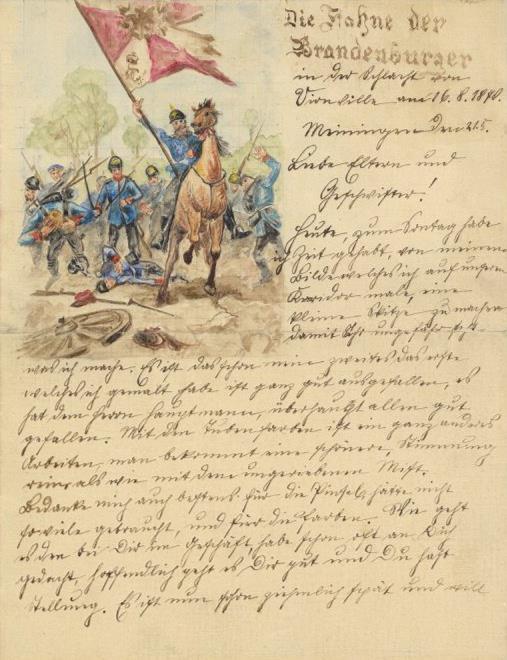 Die Fahne der
Brandenburger
in der Schlacht von
Vionville am 16.8.1870.
Meiningen den 21.5.
Liebe Eltern und
Geschwister!
Heute, zum Sontag habe
ich Zeit gehabt, von meinem
Bilde welches ich auf unserem
Koridor male, eine
kleine Skitze zu machen
damit Ihr ungefähr seht
was ich mache. Es ist das schon mein zweites das erste
welches ich gemalt habe ist ganz gut ausgefallen, es
hat dem Herrn Hauptmann, überhaupt allen gut
gefallen. Mit den Tubenfarben ist ein ganz anderes
Arbeiten, man bekommt eine schönere, Stimmung
rein, als wie mit dem ungeriebenen Mist.
Bedanke mich auch bestens für die Pinsel, hätte nicht
soviele gebraucht, und für die Farben. Wie geht
es den bei Dir im Geschäft, habe schon oft an Dich
gedacht, hoffendlich geht es Dir gut und Du hast
Stellung. Es ist nun schon ziehmlich spät und will